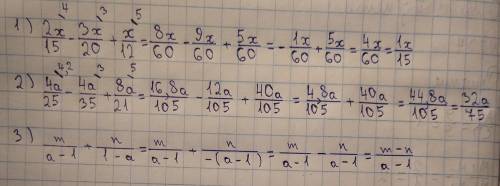 1) 2x/15 (4) - 3x/20 (3) + x/12 (5) = 8x/60 - 9x/60 + 5x/60 = - 1x/60 + 5x/60 = 4x/60 = 1x/15
2) 4a/25 (4,2) - 4a/35 (3) + 8a/21 (5) = 16,8a/105 - 12a/105 + 40a/105 = 4,8a/105 + 40a/105 = 44,8a/105 = 32a/75
3) m/(a-1) + n/(1-a) = m/(a-1) + n/(-(a-1)) = m/(a-1) - n/(a-1) = (m-n)/(a-1)